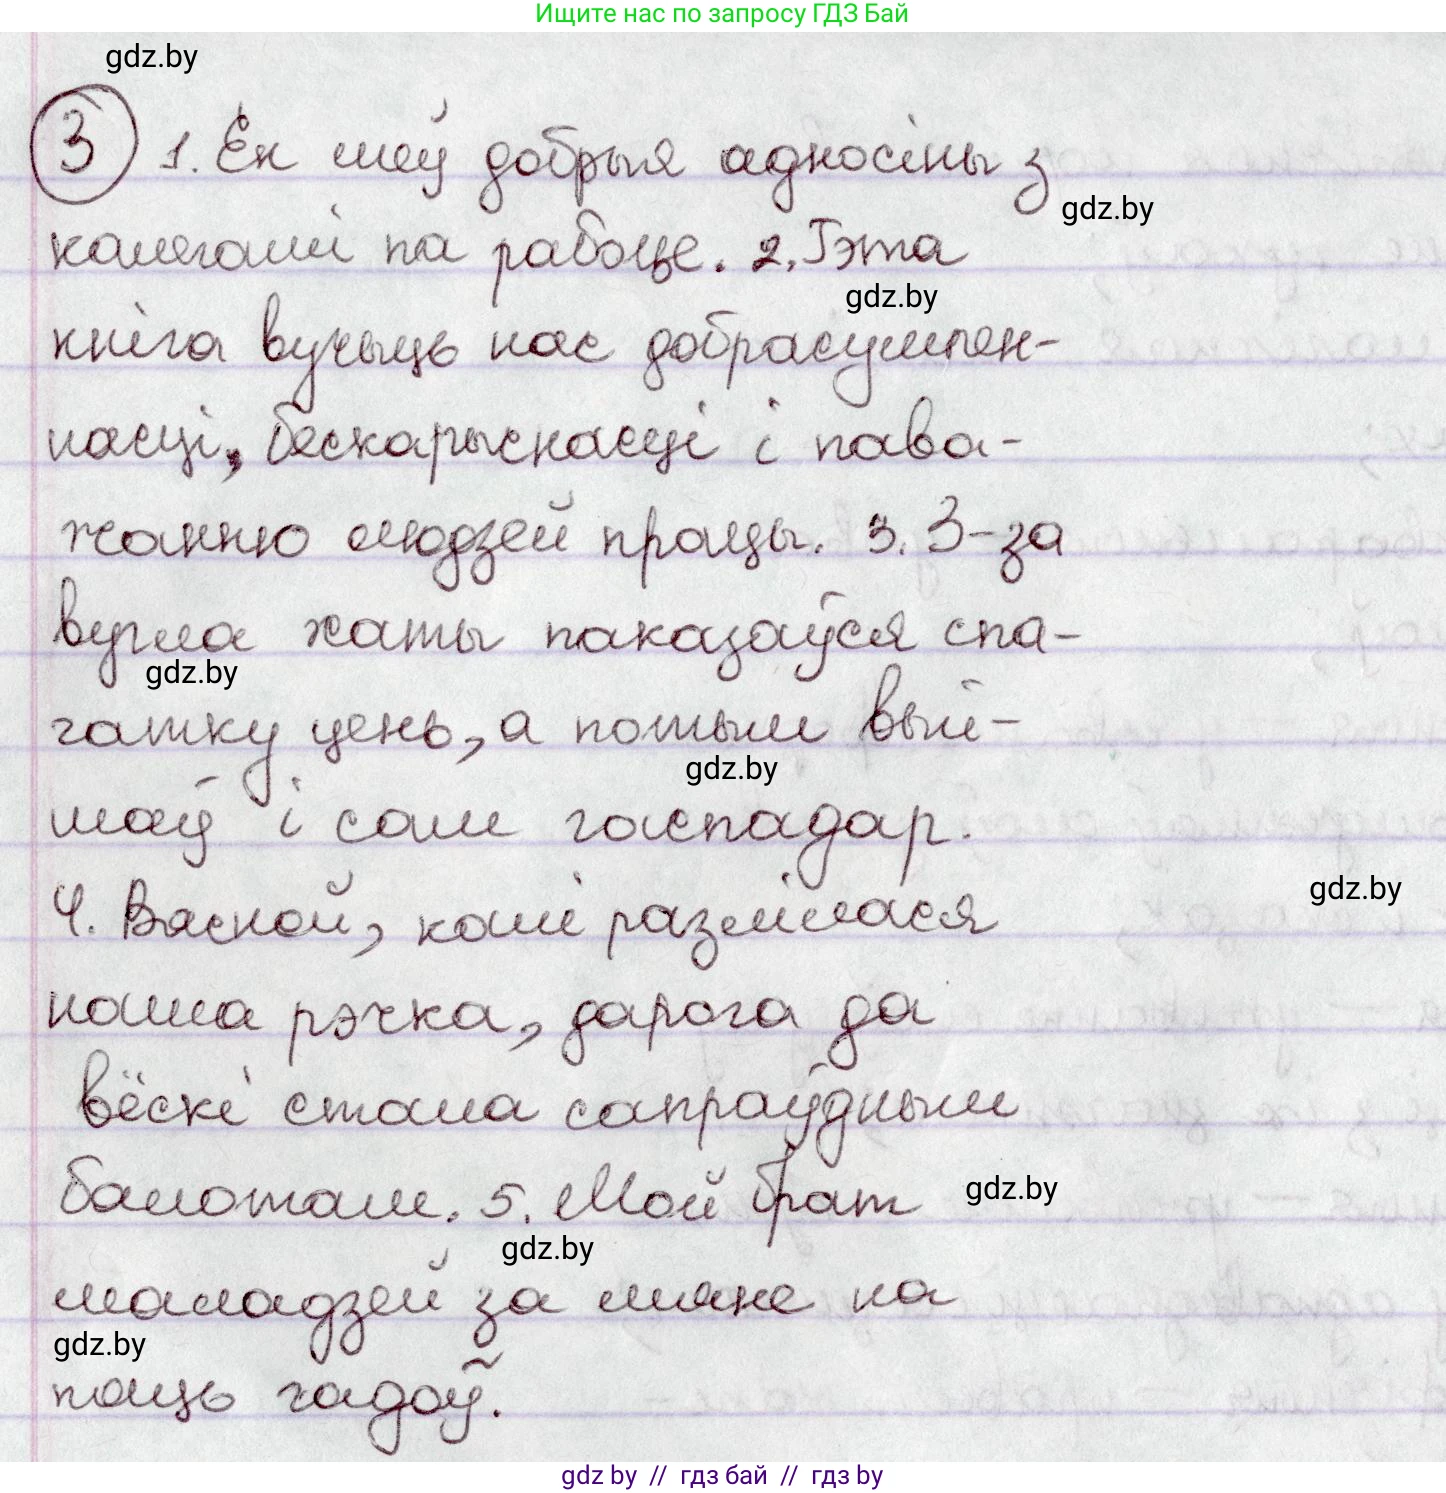 Ищите нас по запросу ГДЗ Бай
gdz.by
3 1. Ён меў добрыя адносіны з
gdz.by
калегамі па рабоце. 2. Гэта
gdz.by
кніга вучыць нас добрасумлен-
насці, бескарыснасці і пава-
жанню людзей працы. 3. З-за
вугла хаты паказаўся спа-
gdz.by
чатку цень, а потым вый-
gdz.by
шаў і сам гаспадар.
gdz.by
4. Вясной, калі разлілася
наша рэчка, дарога да
вёскі стала сапраўдным
балотам. 5. Мой брат
gdz.by
gdz.by
маладзей за мяне на
gdz.by
пяць гадоў.
gdz by // гдз бай // гдз by